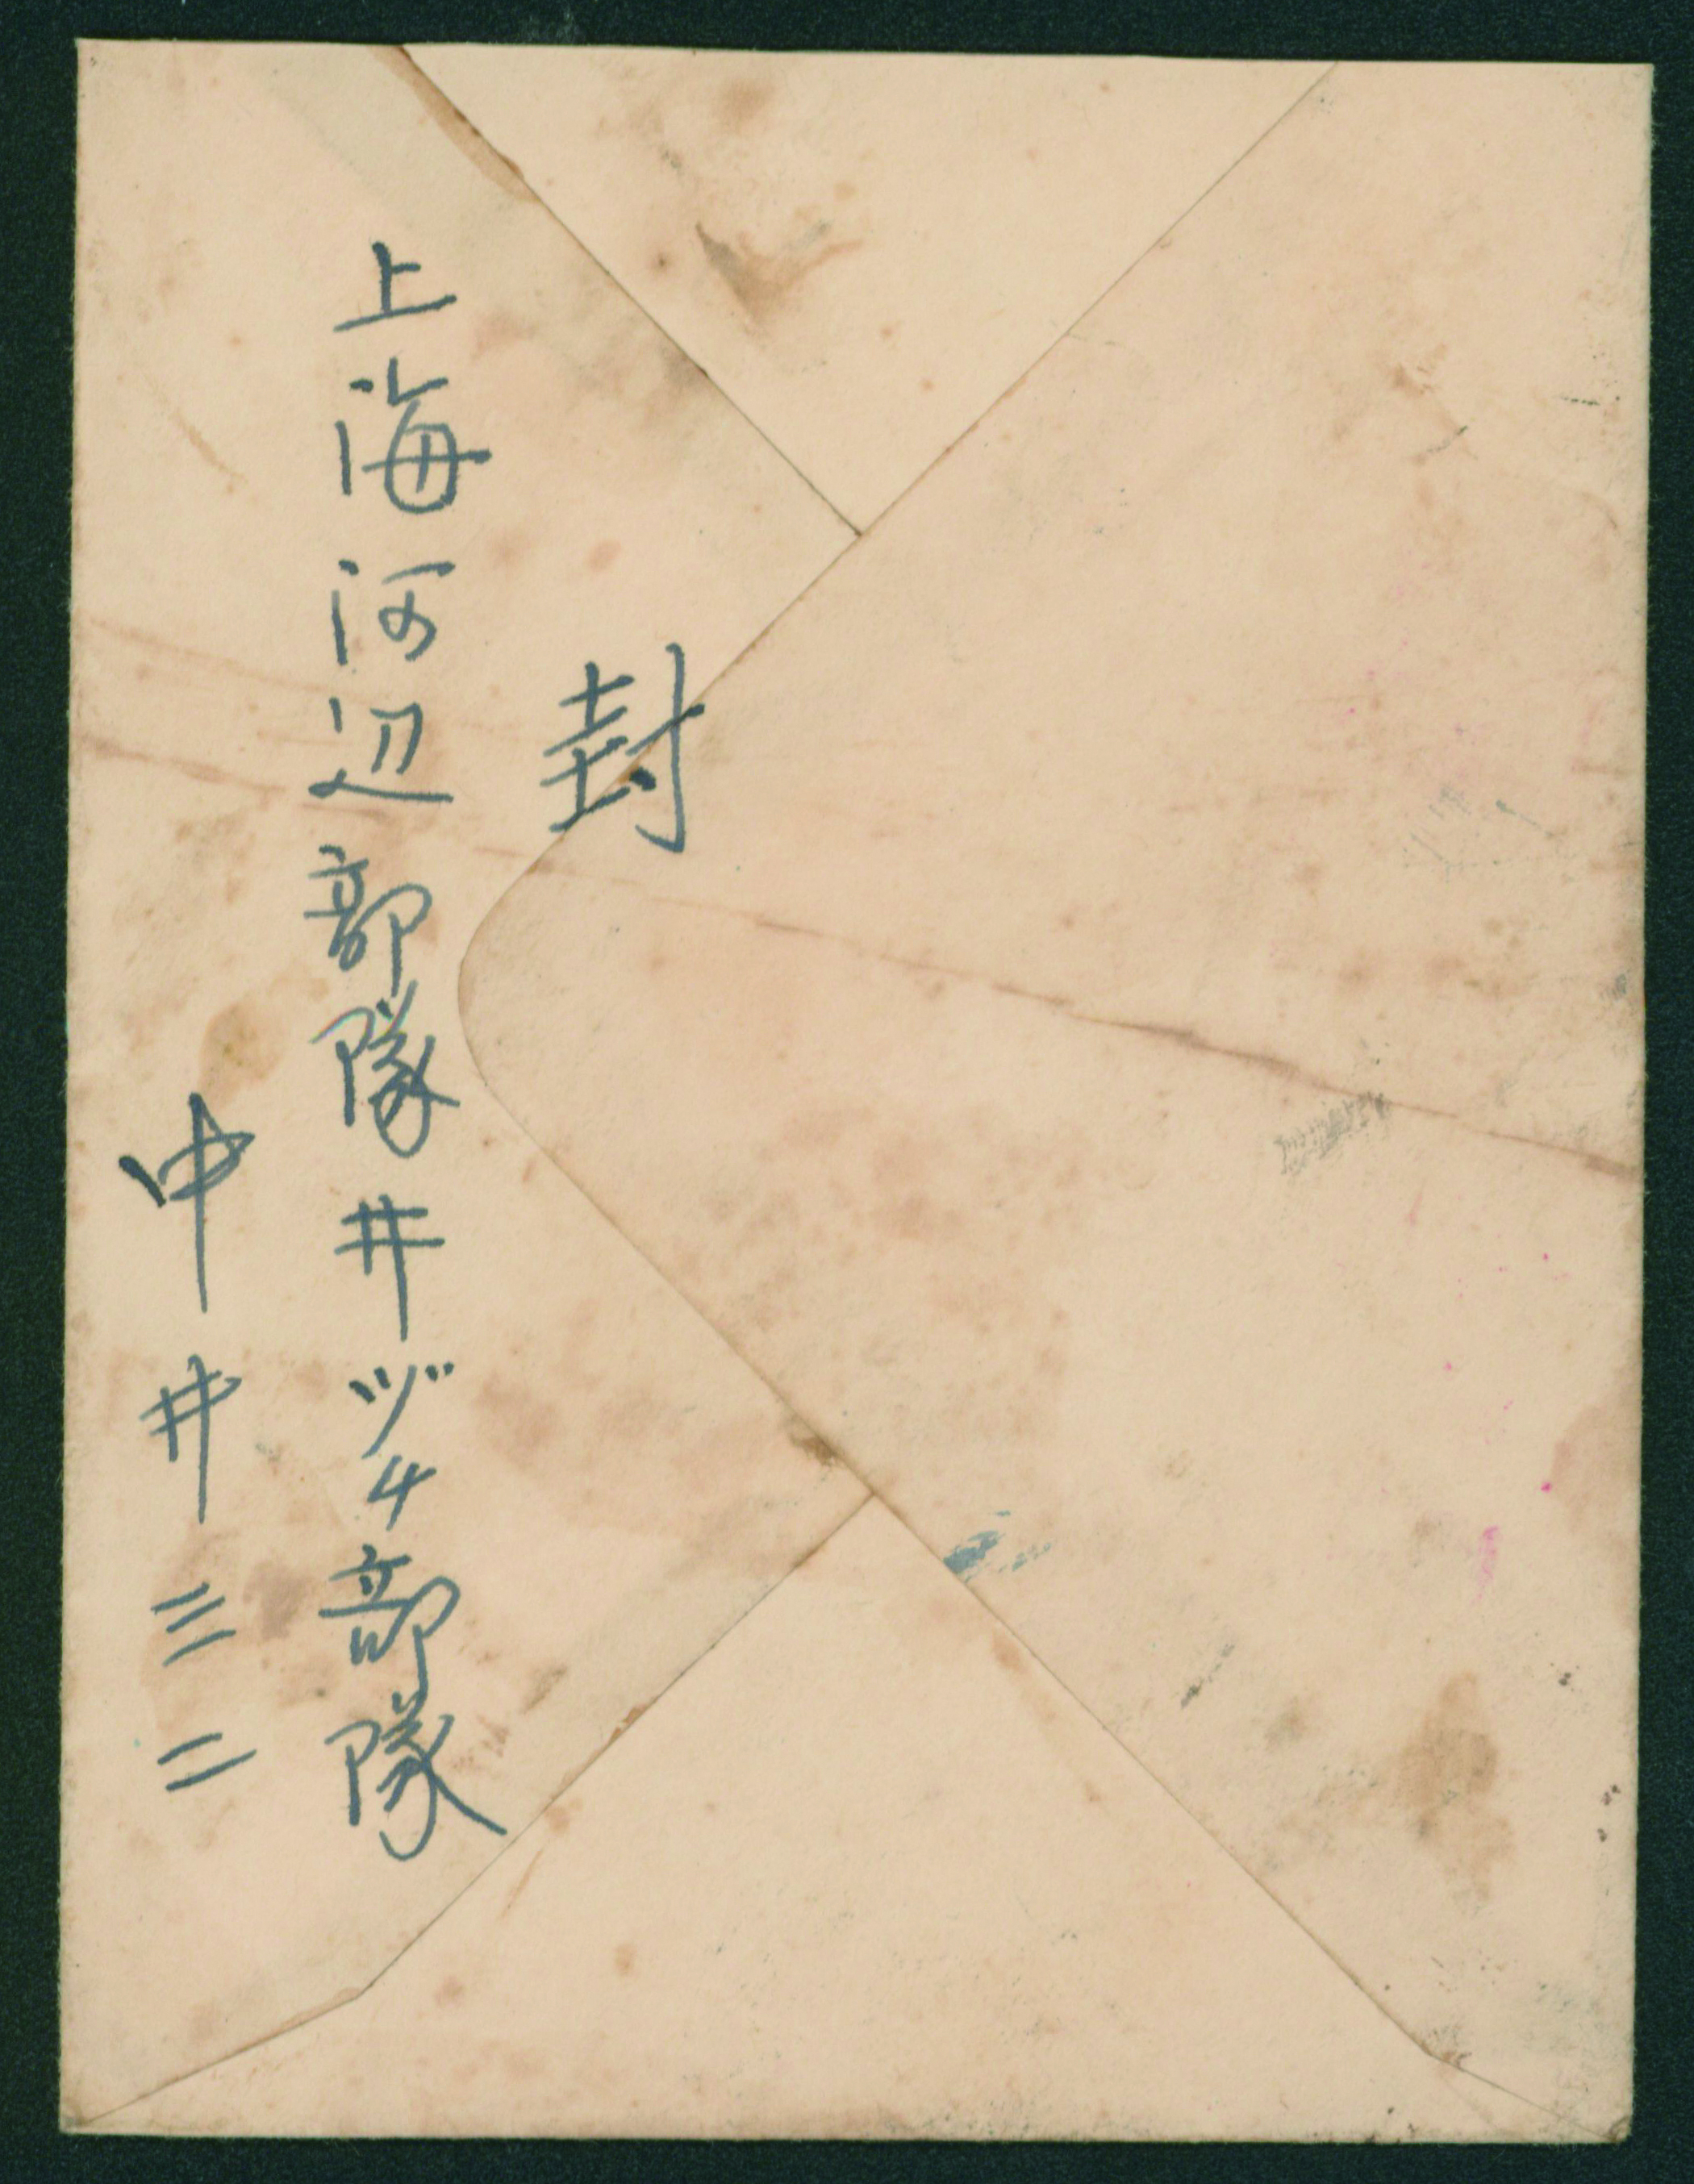 封
上海河辺部隊井ヅ4部隊
中井三二